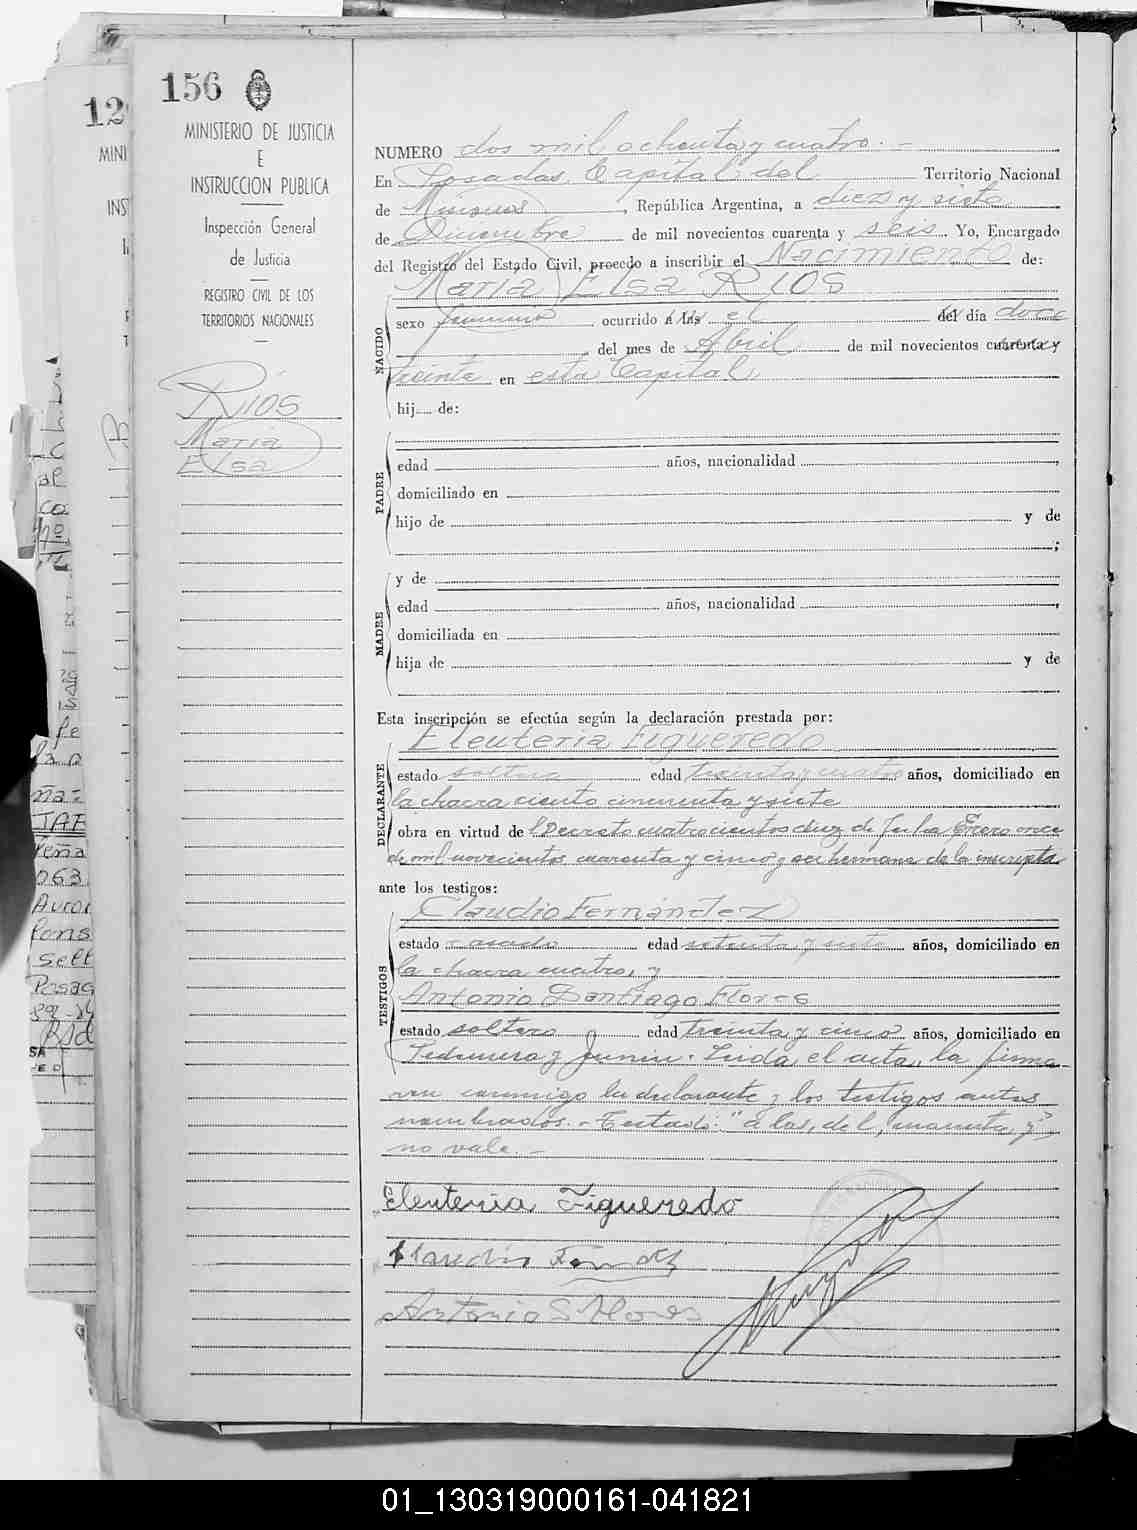 156
MINISTERIO DE JUSTICIA
E
INSTRUCCION PUBLICA
Inspección General
de Justicia
REGISTRO CIVIL DE LOS
TERRITORIOS NACIONALES
Ríos
María
Elsa
NUMERO dos mil ochenta y cuatro.-
En Posadas, Capital del Territorio Nacional
de Misiones, República Argentina, a diez y siete
de Diciembre de mil novecientos cuarenta y seis Yo, Encargado
del Registro del Estado Civil, procedo a inscribir el Nacimiento de:
María Elsa Ríos
NACIDO
sexo femenino ocurrido a las el del día doce
del mes de Abril de mil novecientos cuarenta y
treinta en esta Capital,
hij de:
PADRE
edad años, nacionalidad ,
domiciliado en
hijo de y de
;
MADRE
y de
edad años, nacionalidad ,
domiciliada en
hija de y de
Esta inscripción se efectúa según la declaración prestada por:
DECLARANTE
Eleuteria Figueredo
estado soltera edad treinta y cuatro años, domiciliado en
la chacra ciento cincuenta y siete
obra en virtud de Decreto cuatrocientos diez de fecha Enero once
de mil novecientos cuarenta y cinco y ser hermana de la inscripta
ante los testigos:
TESTIGOS
Claudio Fernández
estado casado edad setenta y siete años, domiciliado en
la chacra cuatro, y
Antonio Santiago Flores
estado soltero edad treinta y cinco años, domiciliado en
y Junin. Leida el acta, la firma
con conmigo la declarante y los testigos antes
nombrados.- Testado: "a las, del, cuarenta y"
no vale.-
Eleuteria Figueredo
Claudio
Antonio S Flores
12
MINI
INS
01_130319000161-041821